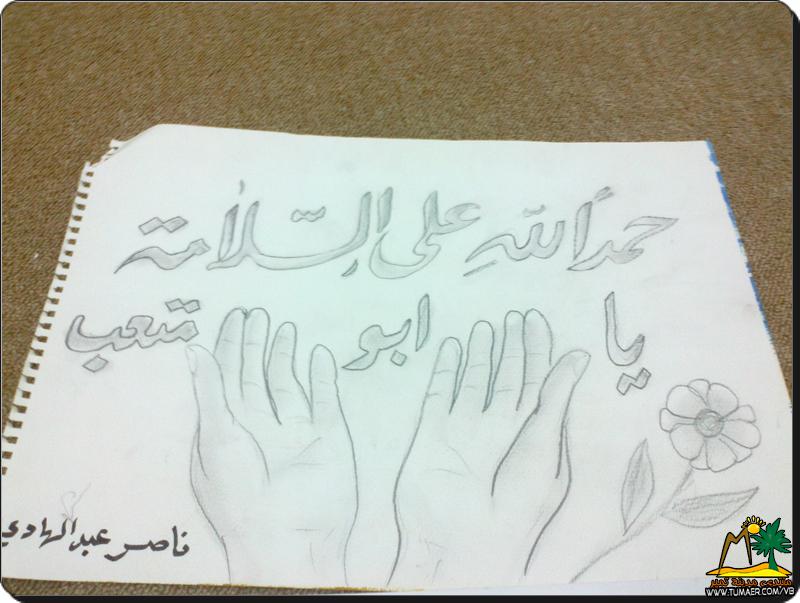 حمداً لله على السّلامة
يا ابو متعب
ناصر عبدالهادي
منتدى مدينة تمير
WWW.TUMAER.COM/VB